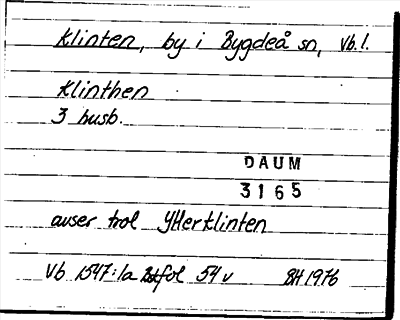 Klinten, by i Bygdeå sn, Vb.l.
Klinthen
3 husb.
DAUM
3165
avser trol Ytterklinten
Vb 1547:1a fol 54 v BH 1976